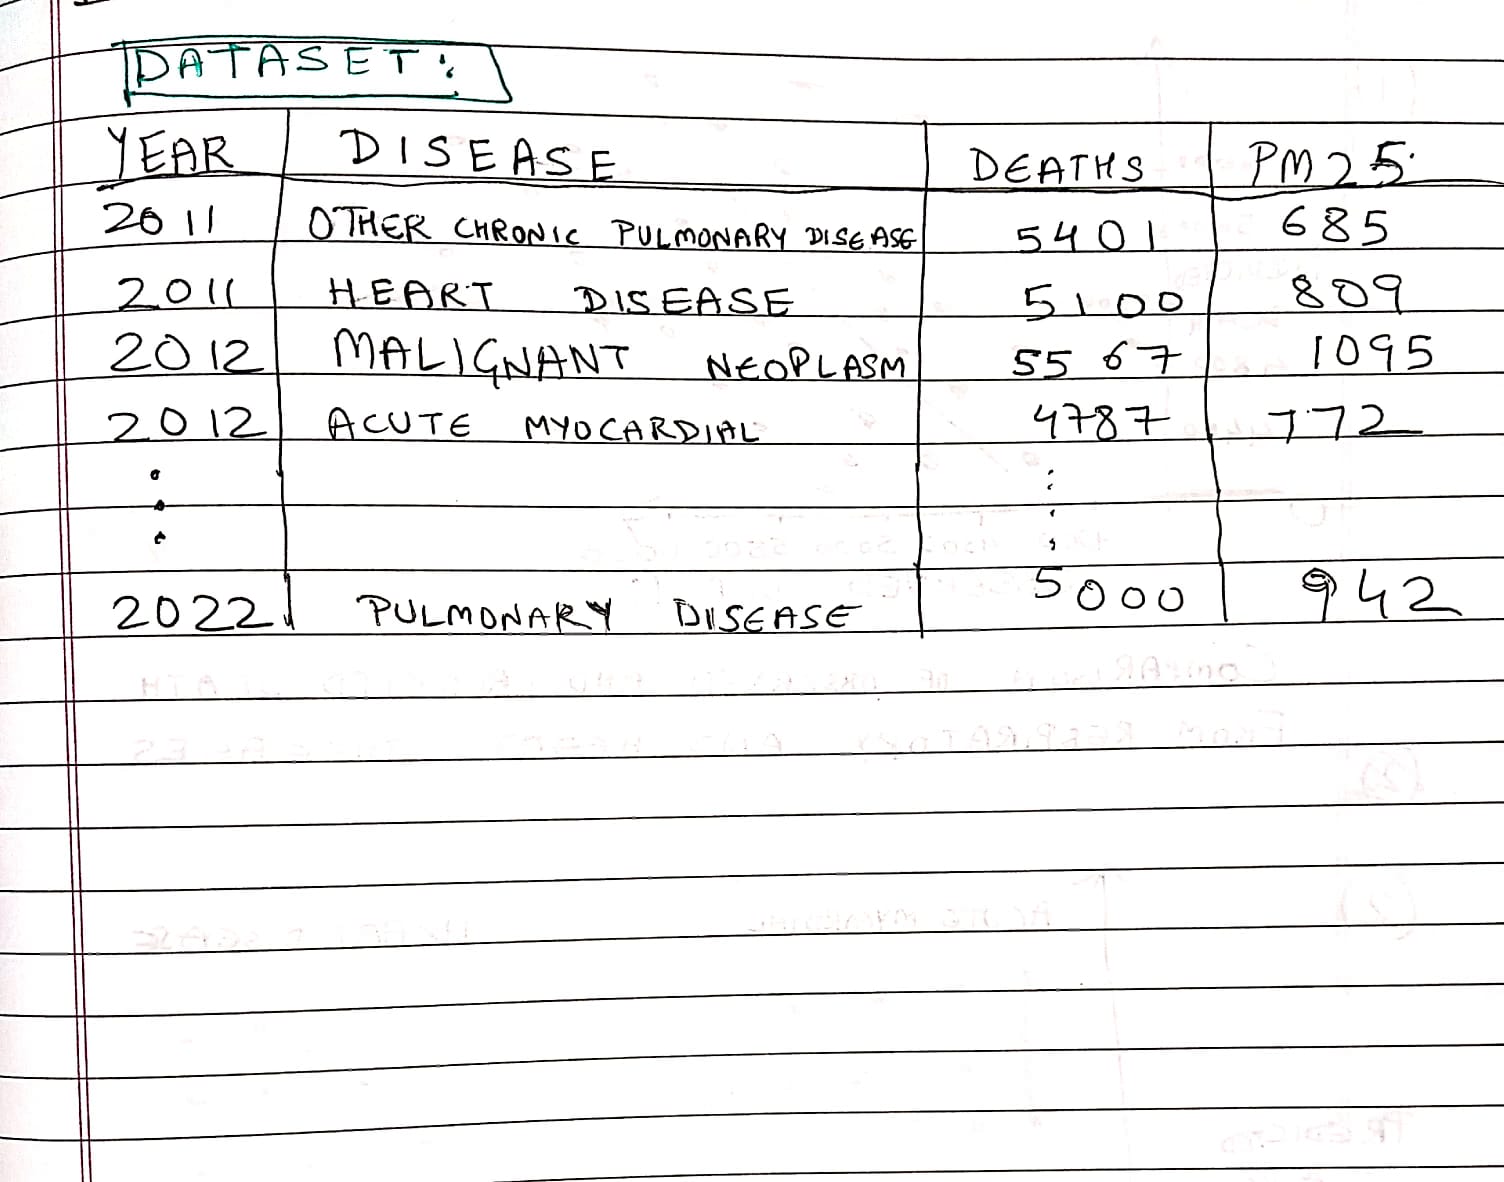 DATASET:
YEAR DISEASE DEATHS PM25
2011 OTHER CHRONIC PULMONARY DISEASE 5401 685
2011 HEART DISEASE 5100 809
2012 MALIGNANT NEOPLASM 5567 1095
2012 ACUTE MYOCARDIAL 4787 772
2022 PULMONARY DISEASE 5000 942